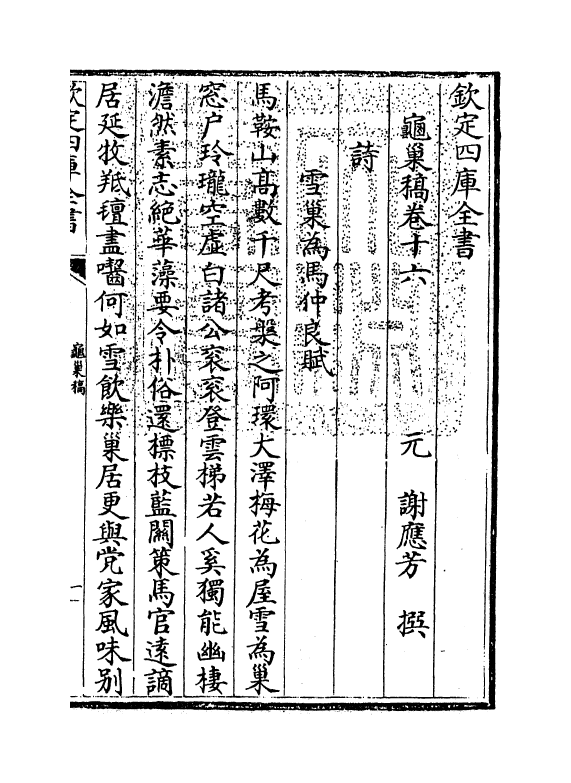 欽定四庫全書
龜巢稿卷十六　元　謝應芳　撰
詩
雪巢為馬仲良賦
馬鞍山髙數千尺考槃之阿環大澤梅花為屋雪為巢
窓户玲瓏空虛白諸公衮衮登雲梯若人奚獨能幽棲
澹然素志絶華藻要令朴俗還標枝藍關策馬官遠謫
居延牧羝氊盡囓何如雪飲樂巢居更與党家風味别
欽定四庫全書
龜巢稿
一